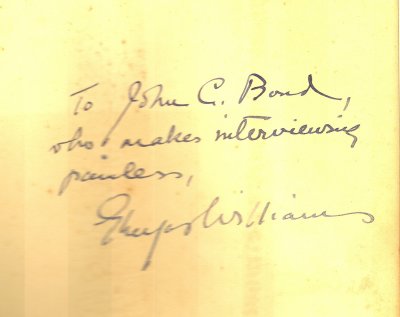 To John C. Bond,
who makes interviewing
painless,
Williams